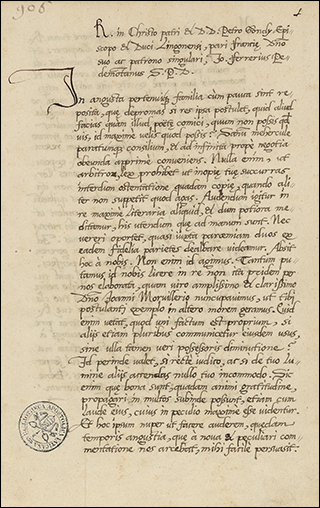 906
1
R. in Christo patri et D.D. Petro Gondy, Epi-
scopo et Duci Lingonensi, pari Franciȩ, Dno
suo ac patrono singulari, Jo. Ferrerius Pe-
demotanus S. P. D.
In angusta pertenuique familia cum pauca sint re-
posita, quȩ depromas si res ipsa postulet, quid aliud
facias quam illud poetȩ comici, quum non possis quod
vis, id maxime velis quod possis? Sanum mehercule
paratumque consilium, et ad infinita prope negotia
obeunda apprime conveniens. Nulla enim, ut
arbitror, lex prohibet ut inopiȩ tuȩ succurras
interdum ostentatione quadam copiȩ, quando ali-
ter non suppetit quod agas. Audendum igitur in
re maxime literaria aliquid, et dum potiora me-
ditamur, his utendum quȩ ad manum sunt. Nec
vereri oportet, quasi iuxta parœmiam duos ex
eadem fidelia parietes dealbare videamur. Absit
hoc à nobis. Non enim id agimus. Tantum pu-
tamus id nobis licere in re non ita pridem per
nos elaborata, quam viro amplissimo et clarissimo
Dno Joanni Morvillerio nuncupavimus, ut tibi
postulanti exemplo in altero morem geramus. Quid
enim vetat, quod uni factum est proprium, si
aliis etiam pluribus communicetur eiusdem usus,
sine ulla tamen veri possessoris diminutione?
Id perinde valet, si recte iudico, ac si de tuo lu-
mine aliis accendas nullo tuo incommodo. Sic
enim quȩ bona sunt, quadam animi gratitudine,
propagari in multos subinde possunt, etiam cum
laude eius, cuius in peculio maxime esse videntur.
Et hoc ipsum nuper ut facere auderem, quȩdam
temporis angustia, quȩ à nova et peculiari com-
mentatione nos arcebat, mihi facile persuasit.